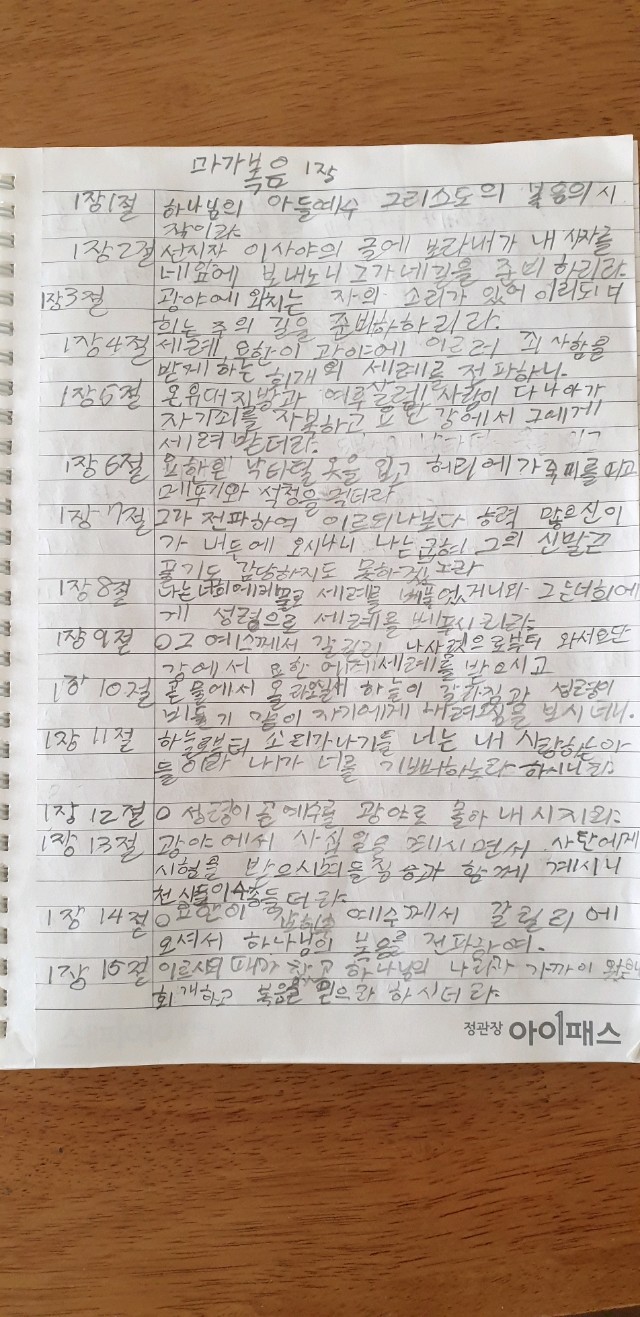 마가복음 1장
1장1절 하나님의 아들예수 그리스도의 복음의 시
작이라
1장2절 선지자 이사야의 글에 보라내가 내 사자를
네앞에 보내노니 그가네길을 준비 하리라
1장3절 광야에 외치는 자의 소리가 있어 이르되 너
희는 주의 길을 준비하하리라.
1장4절 세례 요한이 광야에 이르러 죄 사함을
받게 하는 회개의 세례를 전파하니.
1장5절 온유대지방과 예루살렘 사람이 다 나아가
자기죄를 자복하고 요단 강에서 그에게
세례 받더라.
1장6절 요한은 낙타털 옷을 입고 허리에가죽띠를띠고
메뚜기와 석청을 먹더라
1장7절 그가 전파하여 이르되나보다 능력 많으신이
가 내 뒤에 오시나니 나는 굽혀 그의 신발끈
풀기도 감당하지도 못하겠노라
1장8절 나는너희에게물로 세례를 베풀었거니와 그는너희에
게 성령으로 세례를 베푸시리라.
1장9절 ○그 예수께서 갈릴리 나사렛으로부터 와서요단
강에서 요한 에게세례를 받으시고
1장10절 곧 물에서 올라오실새 하늘이 갈라짐과 성령이
비둘기 같이 자기에게 내려오심을 보시더니.
1장11절 하늘로부터 소리가나기를 너는 내 사랑하는아
들이라 내가 너를 기뻐하노라 하시니라.
1장12절 ○ 성령이 곧 예수를 광야로 몰아 내시지라.
1장13절 광야에서 사십일을 계시면서 사탄에게
시험을 받으시며들짐승과 함께 계시니
천사들이수종들더라.
1장14절 ○요한이 잡힌후 예수께서 갈릴리에
오셔서 하나님의 복음을 전파하여.
1장15절 이르시되 때가 찼고 하나님의 나라가 가까이 왔으니
회개하고 복음을 믿으라 하시더라.
정관장 아이패스